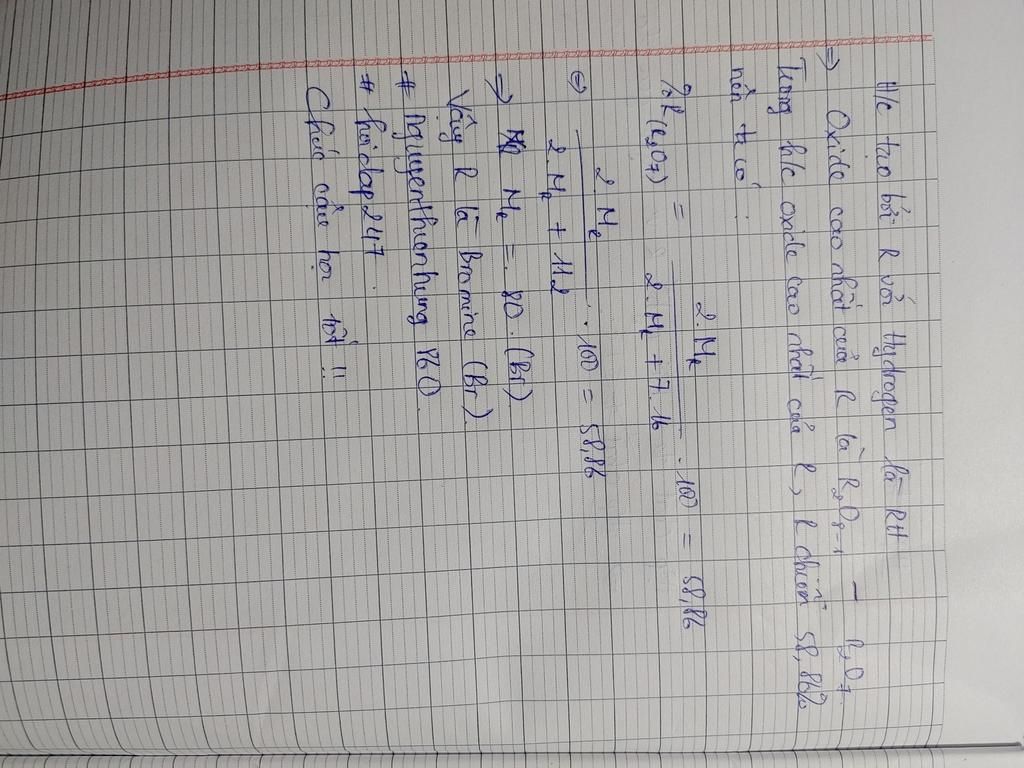 H/c tạo bởi R với Hydrogen là RH
=> Oxide cao nhất của R là R₂O₈₋₁ — R₂O₇.
Trong h/c oxide cao nhất của R, R chiếm 58,86%
nên ta có :
%R(R₂O₇) = 2.M_R / 2.M_R + 7.16 . 100 = 58,86
⇔ 2.M_R / 2.M_R + 112 . 100 = 58,86
=> M_R = 80. (Br).
Vậy R là Bromine (Br).
# nguyenthionhung860
# hoidap247.
Chúc cậu học tốt !!